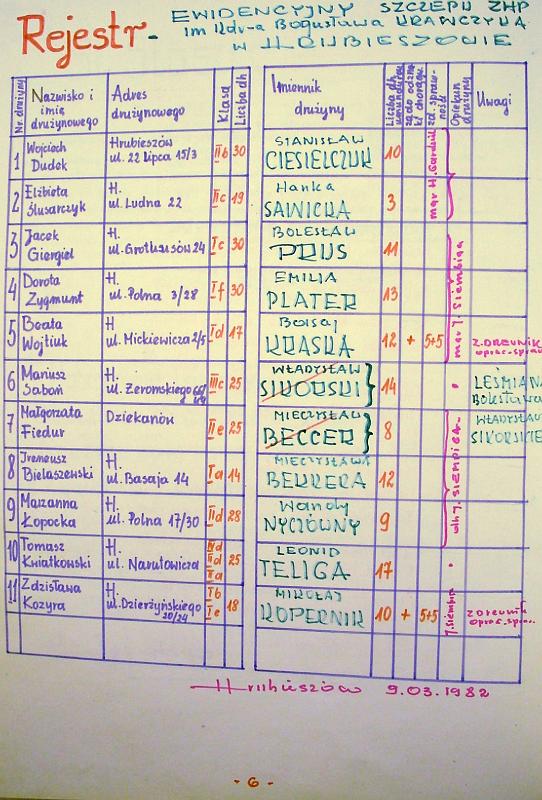 Rejestr-
EWIDENCYJNY SZCZEPU ZHP
im Kdv-a Bogusława KRAWCZYKA
W HRUBIESZOWIE
Nr. drużyny | Nazwisko i imię drużynowego | Adres drużynowego | Klasa | Liczba dh | Imiennik drużyny | Liczba dh | Opiekun drużyny | Uwagi
1 | Wojciech Dudek | Hrubieszów ul. 22 Lipca 15/3 | IIb | 30 | STANISŁAW CIESIELCZUK | 10
2 | Elżbieta Ślusarczyk | H. ul. Ludna 22 | IIc | 19 | Hanka SAWICKA | 3
3 | Jacek Giergiel | H. ul. Grottusów 24 | Ic | 30 | BOLESŁAW PRUS | 11
4 | Dorota Zygmunt | H. ul. Polna 3/28 | If | 30 | EMILIA PLATER | 13
5 | Beata Wojtiuk | H ul. Mickiewicza 2/5 | Id | 17 | KRASKA | 12 | + | 5+5
6 | Mariusz Saboń | H. ul. Żeromskiego | IIIc | 25 | WŁADYSŁAW SIKORSKI } | 14 | LEŚMIANA
7 | Małgorzata Fiedur | Dziekanów | IIe | 25 | MIECZYSŁAW BECCER } | 8 | WŁADYSŁAW SIKORSKIE
8 | Ireneusz Bielaszewski | H. ul. Basaja 14 | Ia | 14 | MIECZYSŁAWA BEKKERA | 12
9 | Marzanna Łopocka | H. ul. Polna 17/30 | IId | 28 | Wandy NYCZÓWNY | 9
10 | Tomasz Kwiatkowski | H. ul. Narutowicza | IId IIa | 25 | LEONID TELIGA | 17
11 | Zdzisława Kozyra | H. ul. Dzierżyńskiego 20/24 | Ib Ie | 18 | MIKOŁAJ KOPERNIK | 10 | + | 5+5 | J. siembiga
Hrubieszów 9.03.1982
- 6 -